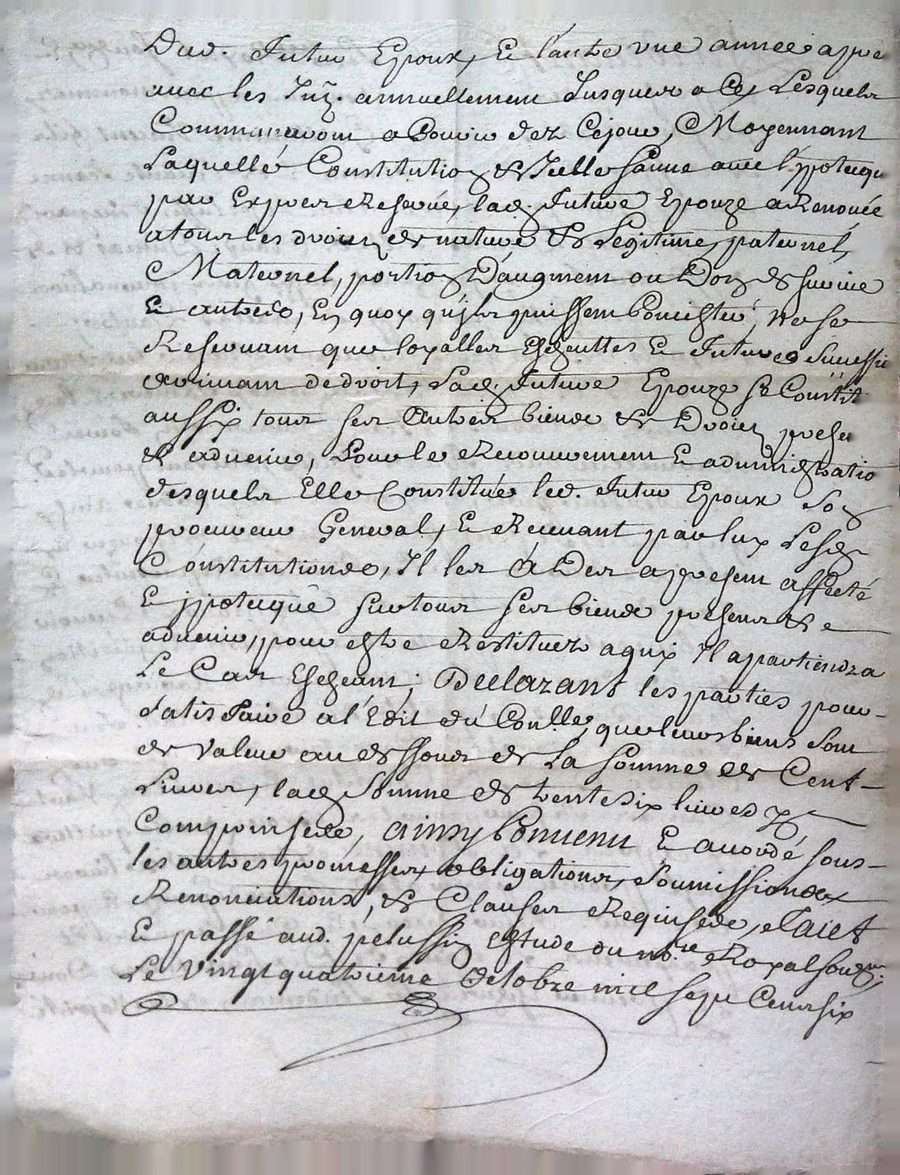 Dud. futur Epoux, Et l'autre une année apre
avec les Int. annuellement Jusques a Ce, Lesquels
Commanceront a Courir dez Cejour, Moyennant
Laquelle Constitution & Icelle payée avec l'ypoteque
par Exprez Reservé, lad. future Epouze a Renoncé
a tous les droits de nature & Legitime, paternel,
Maternel, portion D'augment ou Don de survie
Et autres, En quoy qu'ils puissent Concister, ne se
Reservant que loyalles Escheuttes Et futures Successi
avenant de droit, Lad. future Epouze se Constit
aussy tous ses Autres biens & Droits presen
& advenir, Pour le Recouvrement Et administratio
desquels Elle Constitüe led. futur Epoux Son
procureur General, Et Recevant par luy Lesd.
Constitutions, Il les a Dez apresent affecté
Et ypotequé sur tous ses biens presens & 
advenir, pour estre Restituez a qui Il apartiendra
Le Cas Escheant; Declarant les parties pour
Satisfaire a l'Edit du Con.lle, que leurs biens Sont
de valeur au dessous de La somme de Cent
Livres, lad. Somme de trente six livres y
Comprise, ainsy Convenu Et accordé sous
les autres promesses, obligations, soumissions
Renonciations, & Clauses Requises, Faict
Et passé aud. pelussin Estude du no.re Royal soug.né
Le vingt quatrieme octobre mil sept Cens six